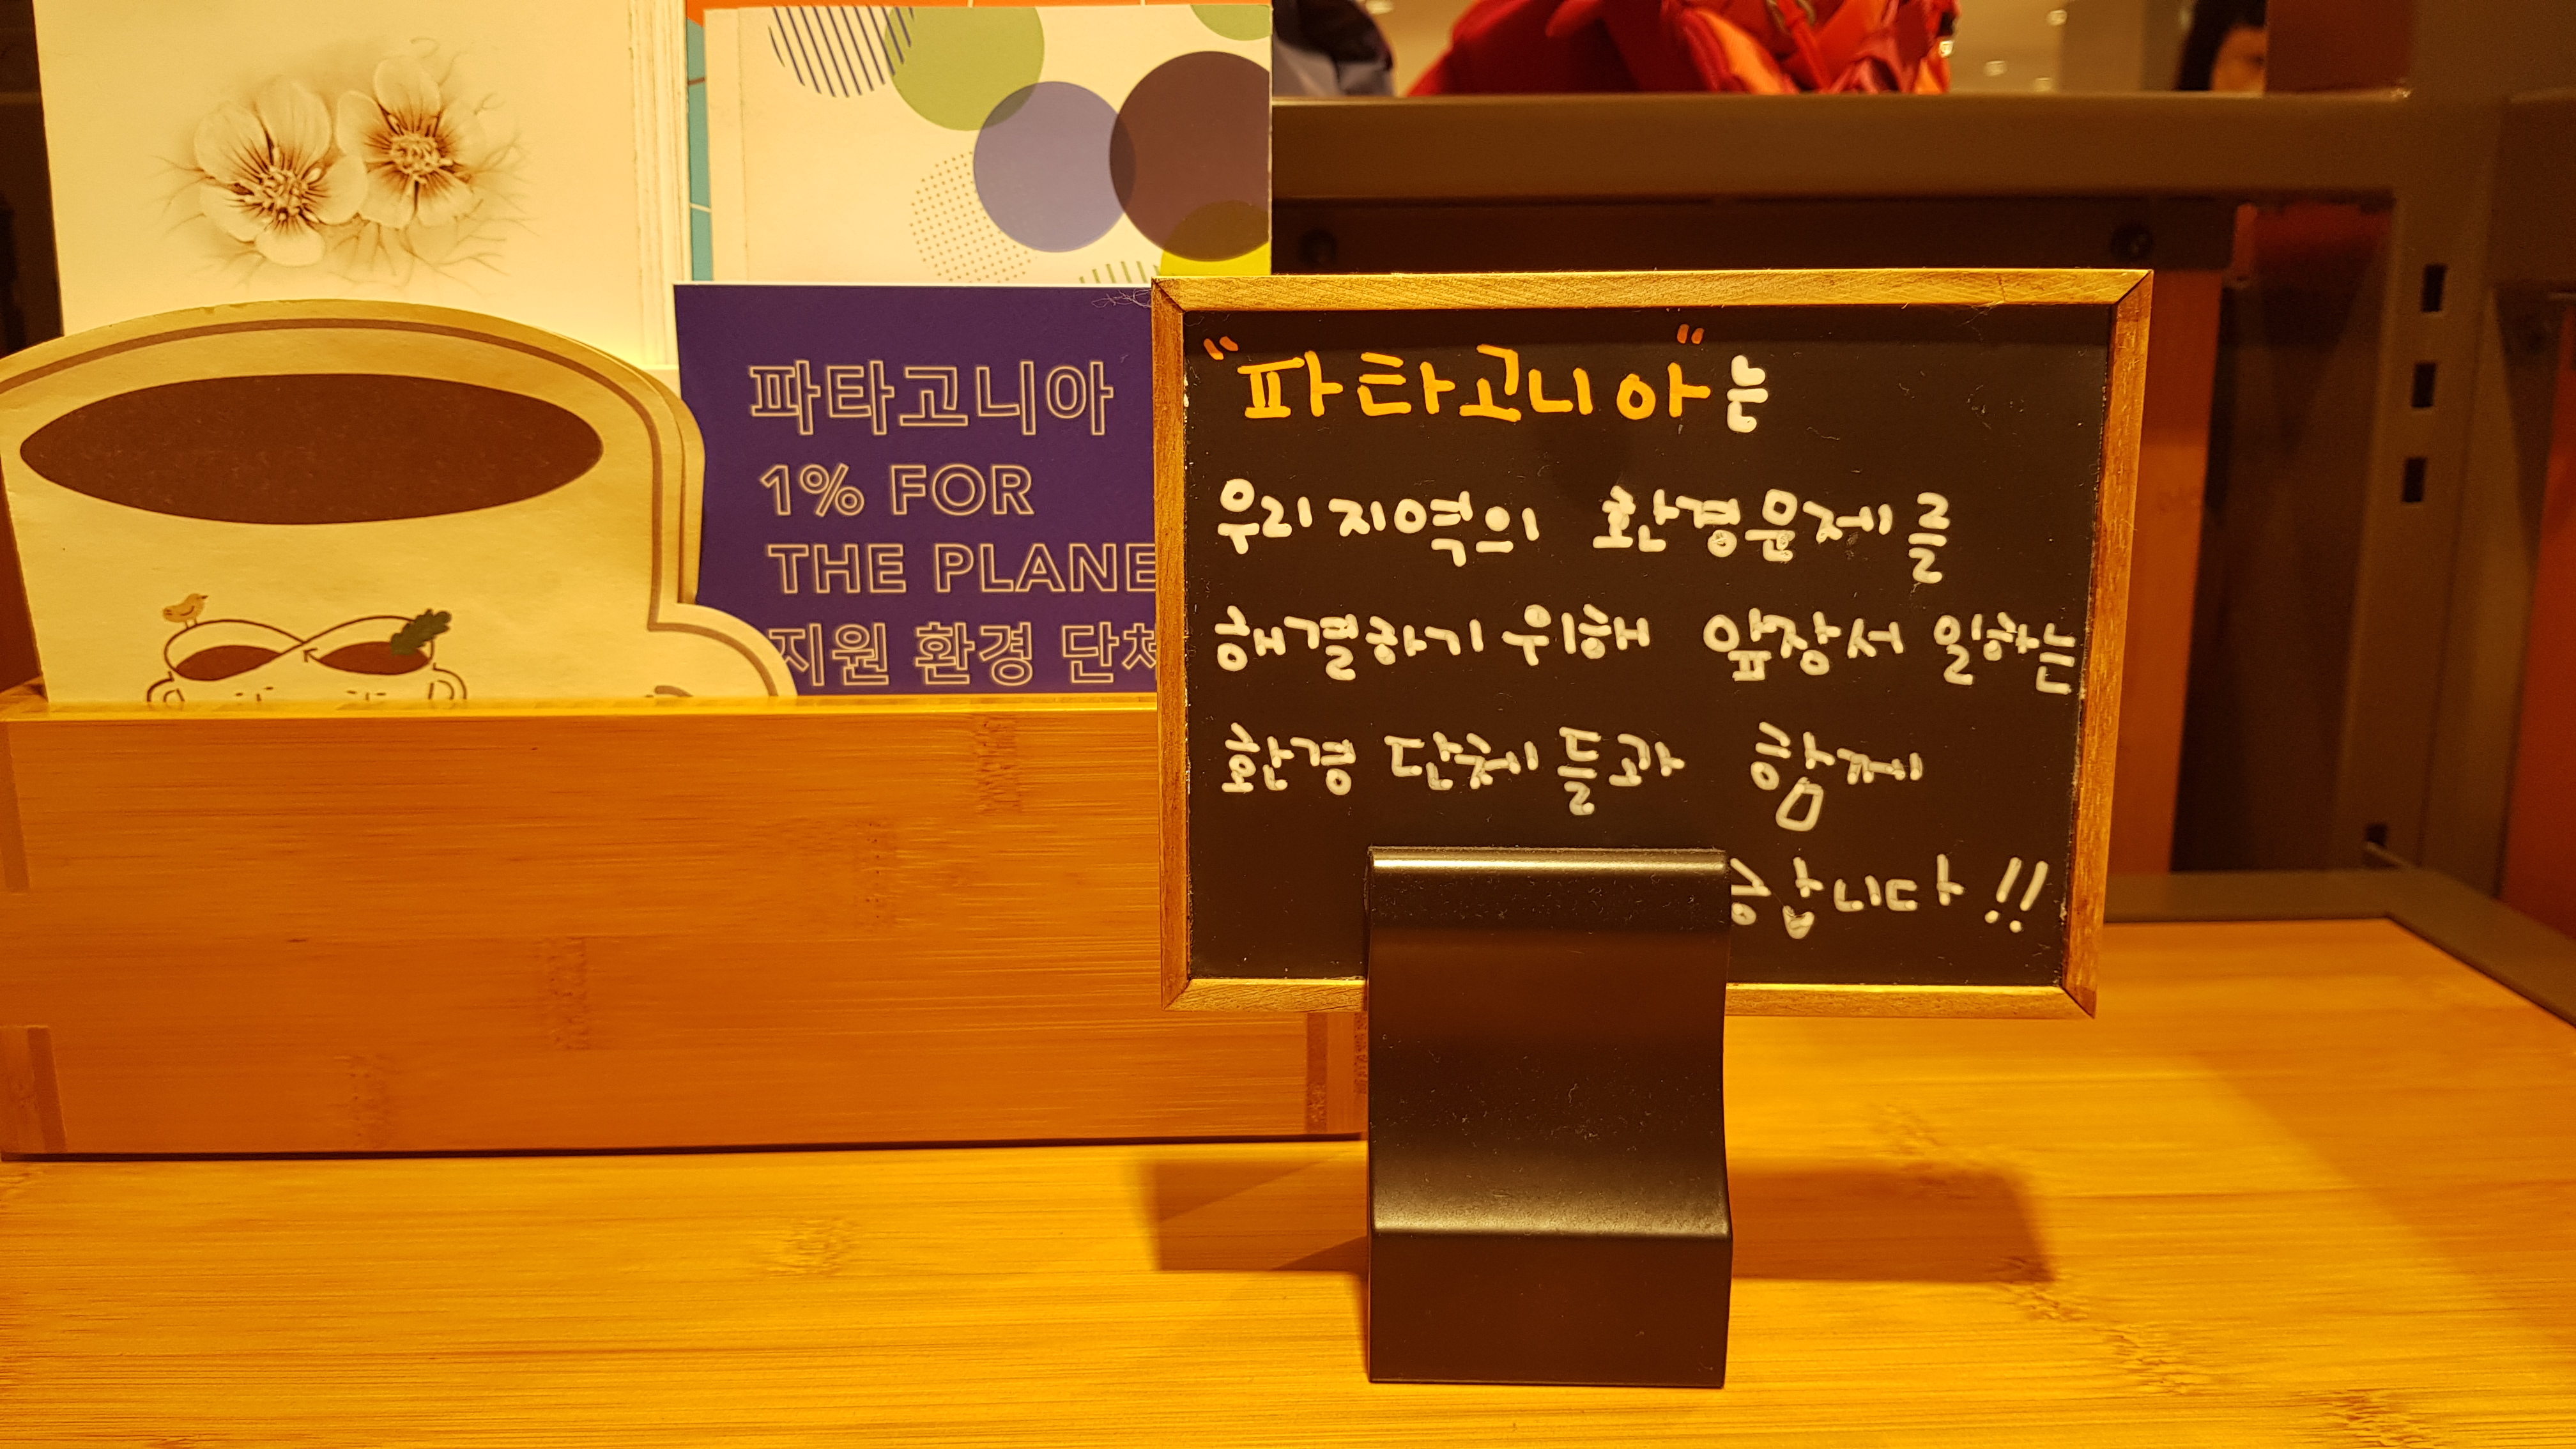 파타고니아
1% FOR
THE PLANE
지원 환경 단체
"파타고니아"는
우리지역의 환경문제를
해결하기위해 앞장서 일하는
환경 단체들과 함께
합니다!!